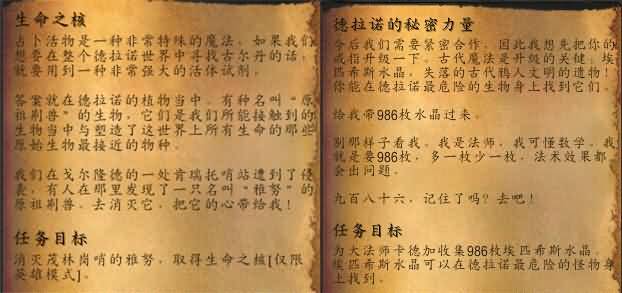 生命之核
占卜活物是一种非常特殊的魔法，如果我们
想要在整个德拉诺世界中寻找古尔丹的话，
就要用到一种非常强大的活体试剂。
答案就在德拉诺的植物当中，有种名叫“原
祖刷兽”的生物，它们是我们所能接触到的
生物当中与塑造了这世界上所有生命的那些
原始生物最接近的物种。
我们在戈尔隆德的一处肯瑞托哨站遭到了侵
袭，有人在那里发现了一只名叫“雅努”的
原祖刷兽。去消灭它，把它的心带给我！
任务目标
消灭茂林岗哨的雅努，取得生命之核[仅限
英雄模式]。
德拉诺的秘密力量
今后我们需要紧密合作，因此我想先把你的
戒指升级一下。古代魔法是升级的关键：埃
匹希斯水晶，失落的古代鸦人文明的遗物！
你能在德拉诺最危险的生物身上找到它们。
给我带986枚水晶过来。
别那样子看我。我是法师，我可懂数学，我
就是要986枚，多一枚少一枚，法术效果都
会出问题。
九百八十六，记住了吗？去吧！
任务目标
为大法师卡德加收集986枚埃匹希斯水晶。
埃匹希斯水晶可以在德拉诺最危险的怪物身
上找到。